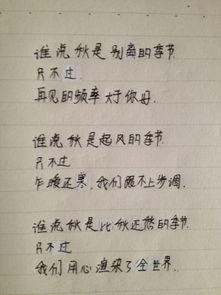 谁说秋是别离的季节
只不过
再见的频率大于你好.
谁说秋是起风的季节
只不过
乍暖还寒,我们跟不上步调.
谁说秋是比秋还愁的季节
只不过
我们用心渲染了全世界.